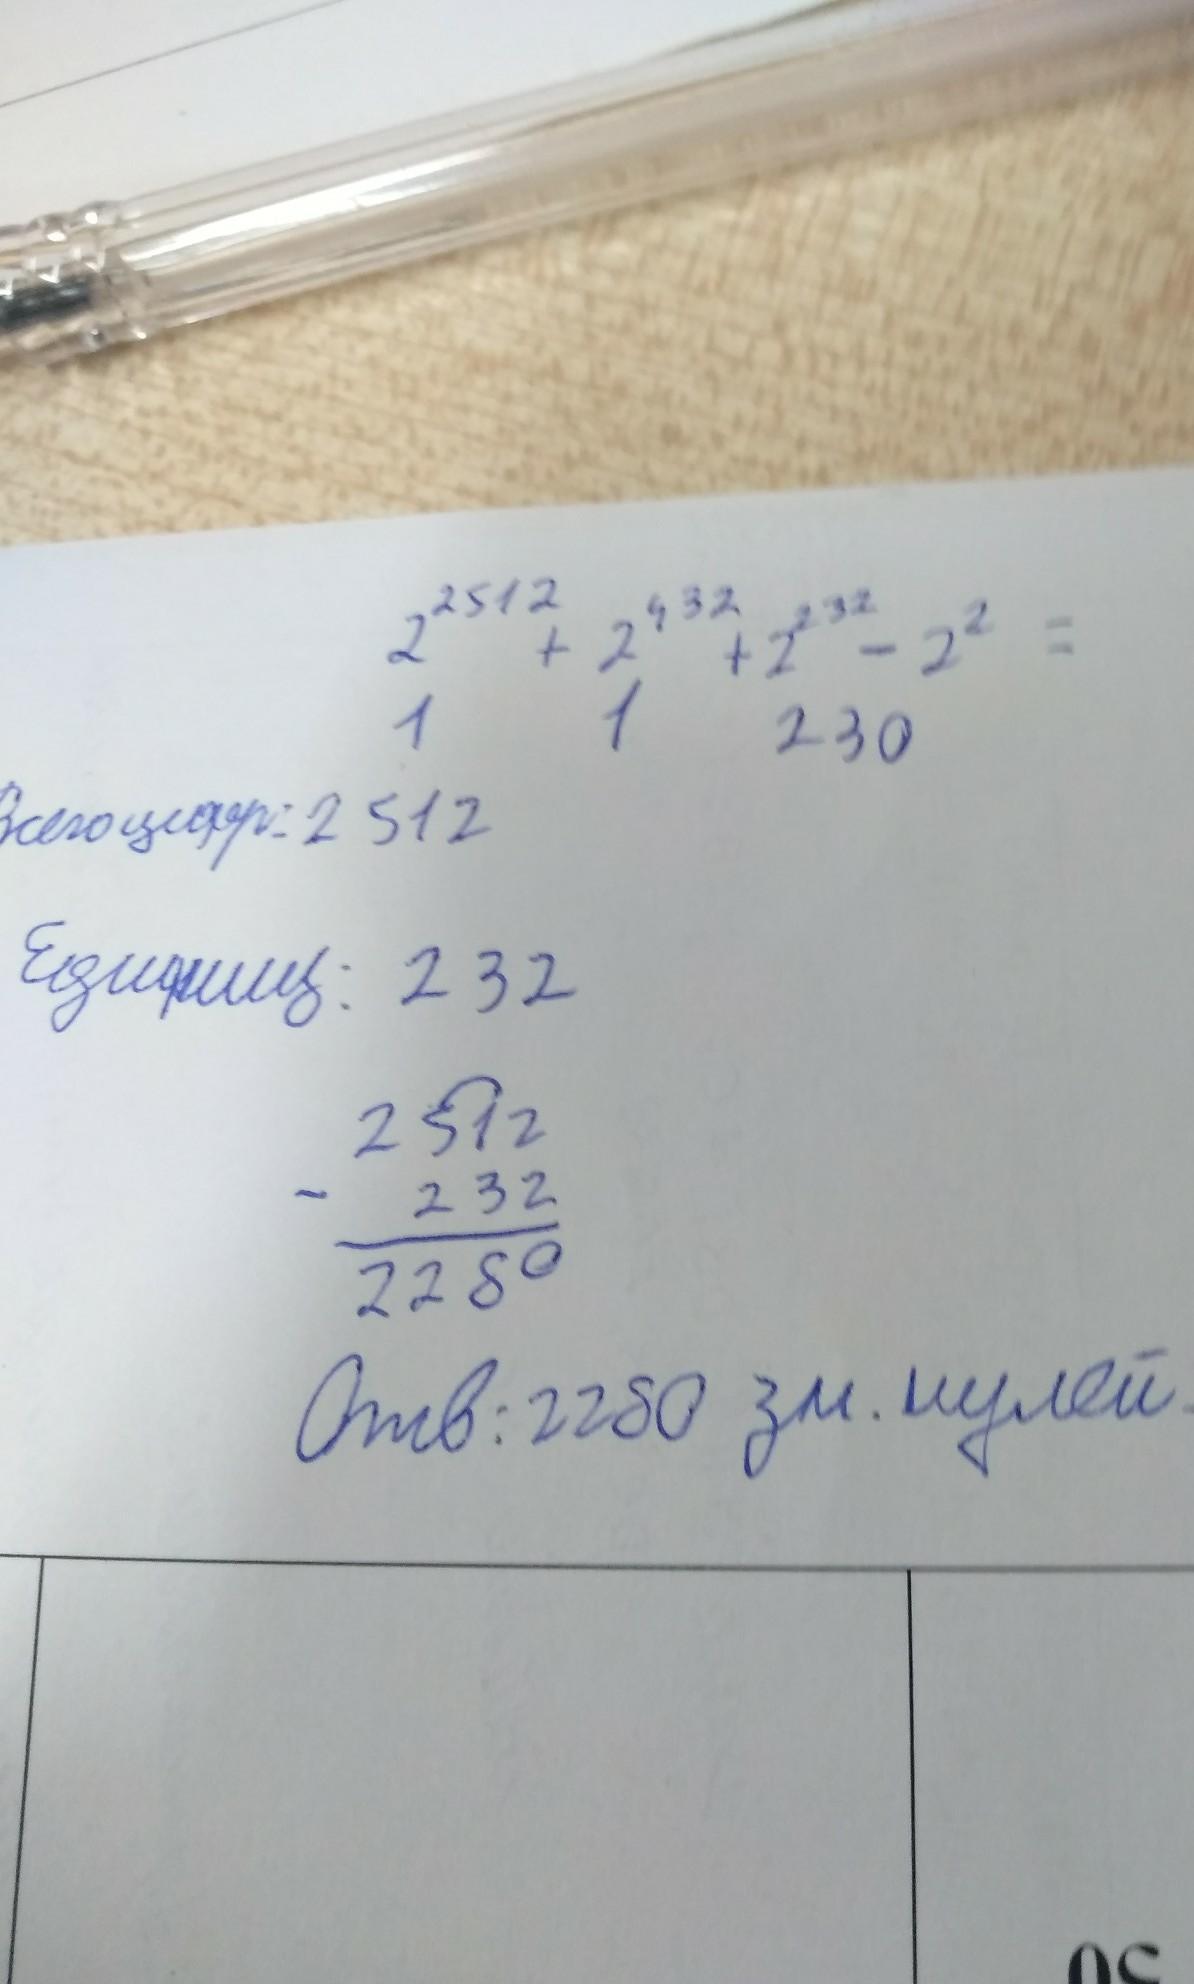 2^2512 + 2^432 + 2^232 - 2^2 =
1 1 230
Всего цифр: 2512
Единиц: 232
2512
- 232
2280
Отв: 2280 зн. нулей.